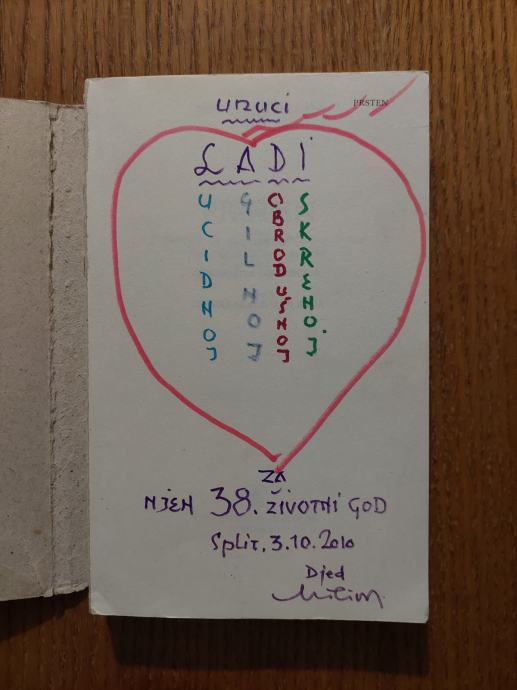 UNUCI
PRSTEN
LADI
UCIDNOJ
GILNOJ
OBRODUŠNOJ
SKRENOJ
ZA
NJEN 38. ŽIVOTNI GOD
Split, 3.10.2010
Djed